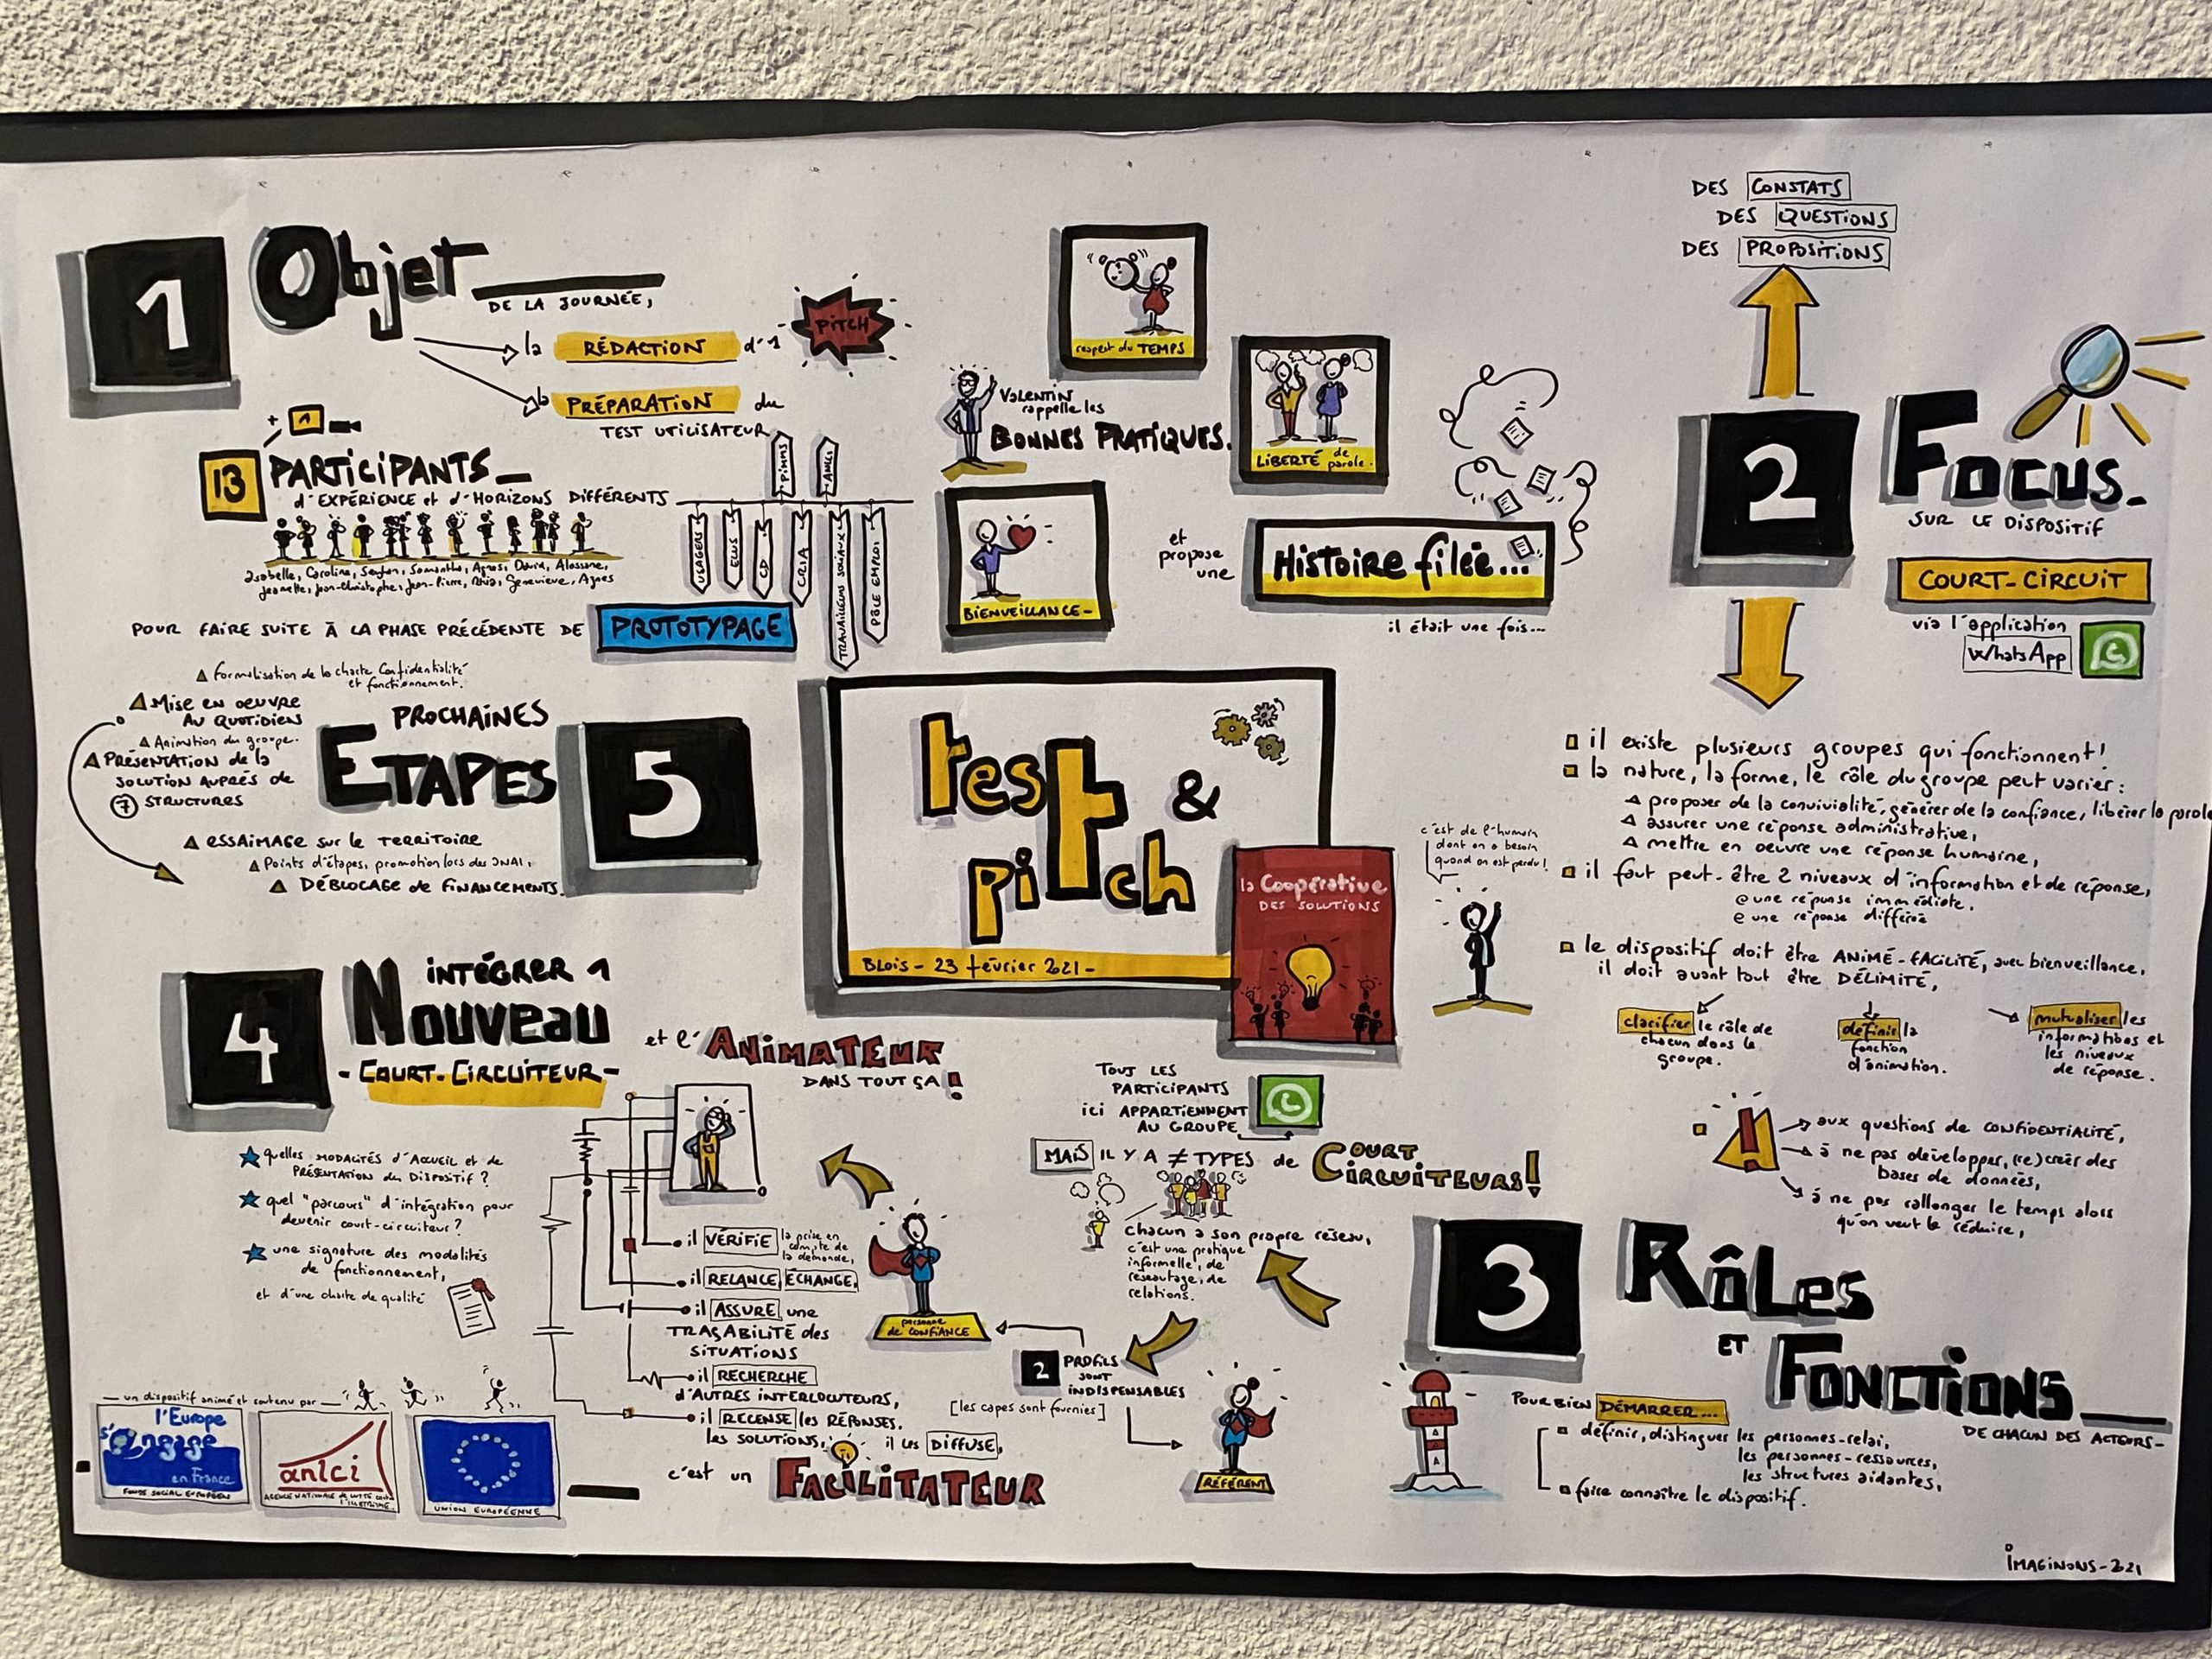 1
Objet
DE LA JOURNÉE,
la RÉDACTION d'1
PITCH
la PRÉPARATION du
TEST UTILISATEUR
+ 1
13 PARTICIPANTS_
d'EXPÉRIENCE et d'HORIZONS DIFFÉRENTS
Isabelle, Caroline, Samantha, Agnes, David, Alassane,
Jeanette, Jean-Christophe, Jean-Pierre, Geneviève, Agnes
PIMMS
ANLCI
USAGERS
ELUS
CD
CRIA
TRAVAILLEURS SOCIAUX
PÔLE EMPLOI
POUR FAIRE SUITE À LA PHASE PRÉCÉDENTE DE PROTOTYPAGE
respect du TEMPS
VALENTIN
rappelle les
BONNES PRATIQUES.
LIBERTÉ de parole.
BIENVEILLANCE-
et
propose
une
HISTOIRE filée...
il était une fois...
DES CONSTATS
DES QUESTIONS
DES PROPOSITIONS
2
FOCUS_
SUR LE DISPOSITIF
COURT-CIRCUIT
via l'application
WhatsApp
il existe plusieurs groupes qui fonctionnent!
la nature, la forme, le rôle du groupe peut varier:
proposer de la convivialité, générer de la confiance, libérer la parole
assurer une réponse administrative,
mettre en oeuvre une réponse humaine,
il faut peut-être 2 niveaux d'information et de réponse,
une réponse immédiate,
une réponse différée
le dispositif doit être ANIMÉ-FACILITÉ, avec bienveillance,
il doit avant tout être DÉLIMITÉ,
clarifier le rôle de
chacun dans le
groupe.
définir la
fonction
d'animation.
mutualiser les
informations et
les niveaux
de réponse.
aux questions de CONFIDENTIALITÉ,
à ne pas développer, (re)créer des
bases de données,
à ne pas rallonger le temps alors
qu'on veut le réduire,
test &
pitch
BLOIS - 23 février 2021 -
la Coopérative
DES SOLUTIONS
c'est de l'humain
dont on a besoin
quand on est perdu!
3
RÔLES
ET FONCTIONS
DE CHACUN DES ACTEURS-
POUR BIEN DÉMARRER...
définir, distinguer les personnes-relai,
les personnes-ressources,
les structures aidantes,
faire connaître le dispositif.
TOUS LES
PARTICIPANTS
ici APPARTIENNENT
AU GROUPE
MAIS IL Y A ≠ TYPES de COURT
CIRCUITEURS!
chacun a son propre réseau,
c'est une pratique
informelle, de
réseautage, de
relations.
2 PROFILS
SONT
INDISPENSABLES
[les capes sont fournies]
personne
de CONFIANCE
RÉFÉRENT
4
INTÉGRER 1
NOUVEAU
- COURT-CIRCUITEUR -
quelles MODALITÉS d'ACCUEIL et de
PRÉSENTATION du DISPOSITIF?
quel "parcours" d'intégration pour
devenir court-circuiteur?
une signature des modalités
de fonctionnement,
et d'une charte de qualité
et l'ANIMATEUR
DANS TOUT ÇA!
il VÉRIFIE la prise en
compte de
la demande,
il RELANCE, ÉCHANGE,
il ASSURE une
TRAÇABILITÉ des
SITUATIONS
il RECHERCHE
d'AUTRES INTERLOCUTEURS,
il RECENSE les RÉPONSES,
les SOLUTIONS, il les DIFFUSE,
c'est un FACILITATEUR
5
PROCHAINES
ETAPES
Formalisation de la charte Confidentialité
et fonctionnement.
MISE EN OEUVRE
AU QUOTIDIEN
Animation du groupe.
PRÉSENTATION de la
SOLUTION AUPRÈS de
7 STRUCTURES
ESSAIMAGE sur le TERRITOIRE
Points d'étapes, promotion lors des JNAI,
DÉBLOCAGE de FINANCEMENTS.
un dispositif animé et soutenu par
l'Europe
s'engage
en France
FONDS SOCIAL EUROPÉEN
anlci
AGENCE NATIONALE de LUTTE contre
l'ILLETTRISME.
UNION EUROPÉENNE
IMAGINONS-2021